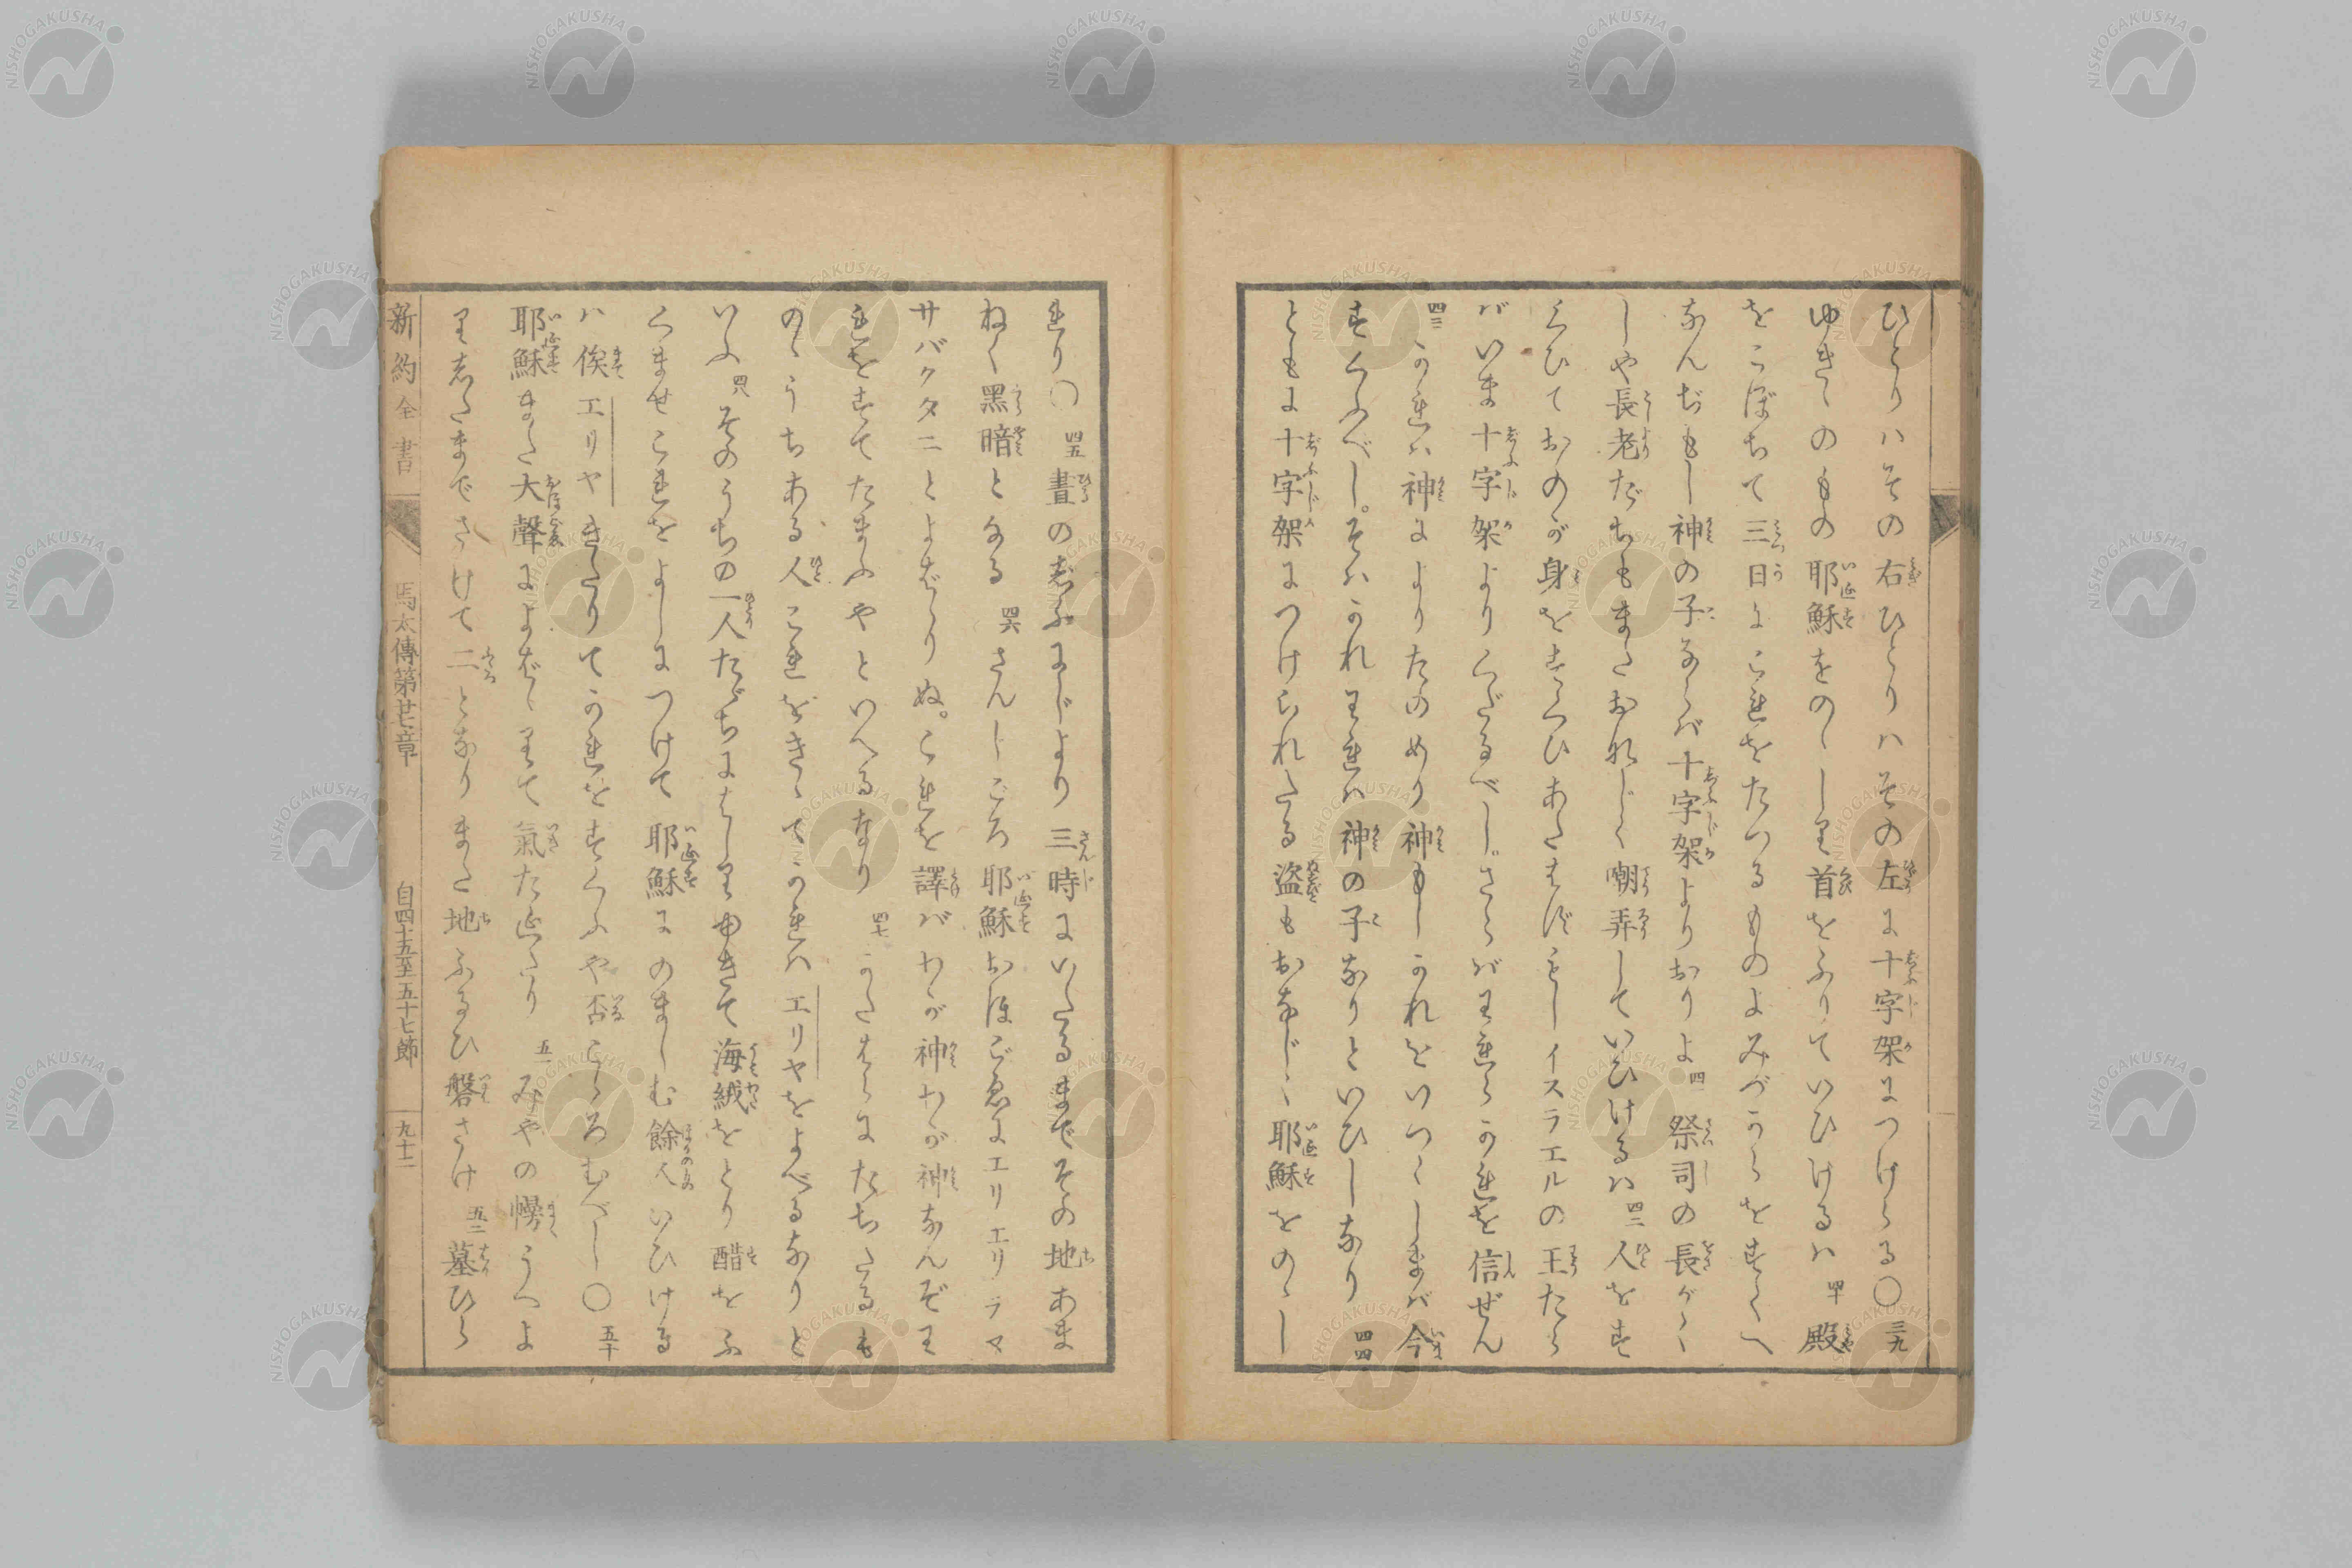 ひとりハその右ひとりハその左に十字架につけらる〇三九
ゆきゝのもの耶穌をのゝしり首をふりていひけるハ四十殿
をこぼちて三日にこれをたつるものよみづからを すくへ
なんぢもし神の子ならバ十字架よりおりよ四一祭司の長がく
しや長老たちもまたおなじく嘲弄していひけるハ四二人をす
くひておのが身をすくひあたはずもしイスラエルの王たら
バいま十字架よりくだるべし。さらバわれらかれを信ぜん
四三かれハ神によりたのめり神もしかれをいつくしまバ今
すくふべし。そハかれわれハ神の子なりといひしなり四四
ともに十字架につけられたる盗もおなじく耶穌をのゝし
れり〇四五晝の十二じより三時にいたるまでその地あま
ねく黑暗となる四六さんじごろ耶穌おほごゑにエリエリラマ
サバクタニとよばゝりぬ。これを譯バわが神わが神なんぞわ
れをすてたまふやといへるなり四七かたはらにたちたるも
のゝうちある人これをきゝてかれハエリヤをよべるなりと
いふ四八そのうちの一人たゞちにはしりゆきて海絨をとり醋をふ
くませこれをよしにつけて耶穌にのましむ餘人いひける
ハ俟エリヤきたりてかれをすくふや否こゝろむべし〇五十
耶穌また大聲によばゝりて氣たえたり五一みやの幔うへよ
りしたまでさけて二となりまた地ふるひ磐さけ五二墓ひら
新約全書 馬太傳第廿七章 自四十五至五十七節 九十二